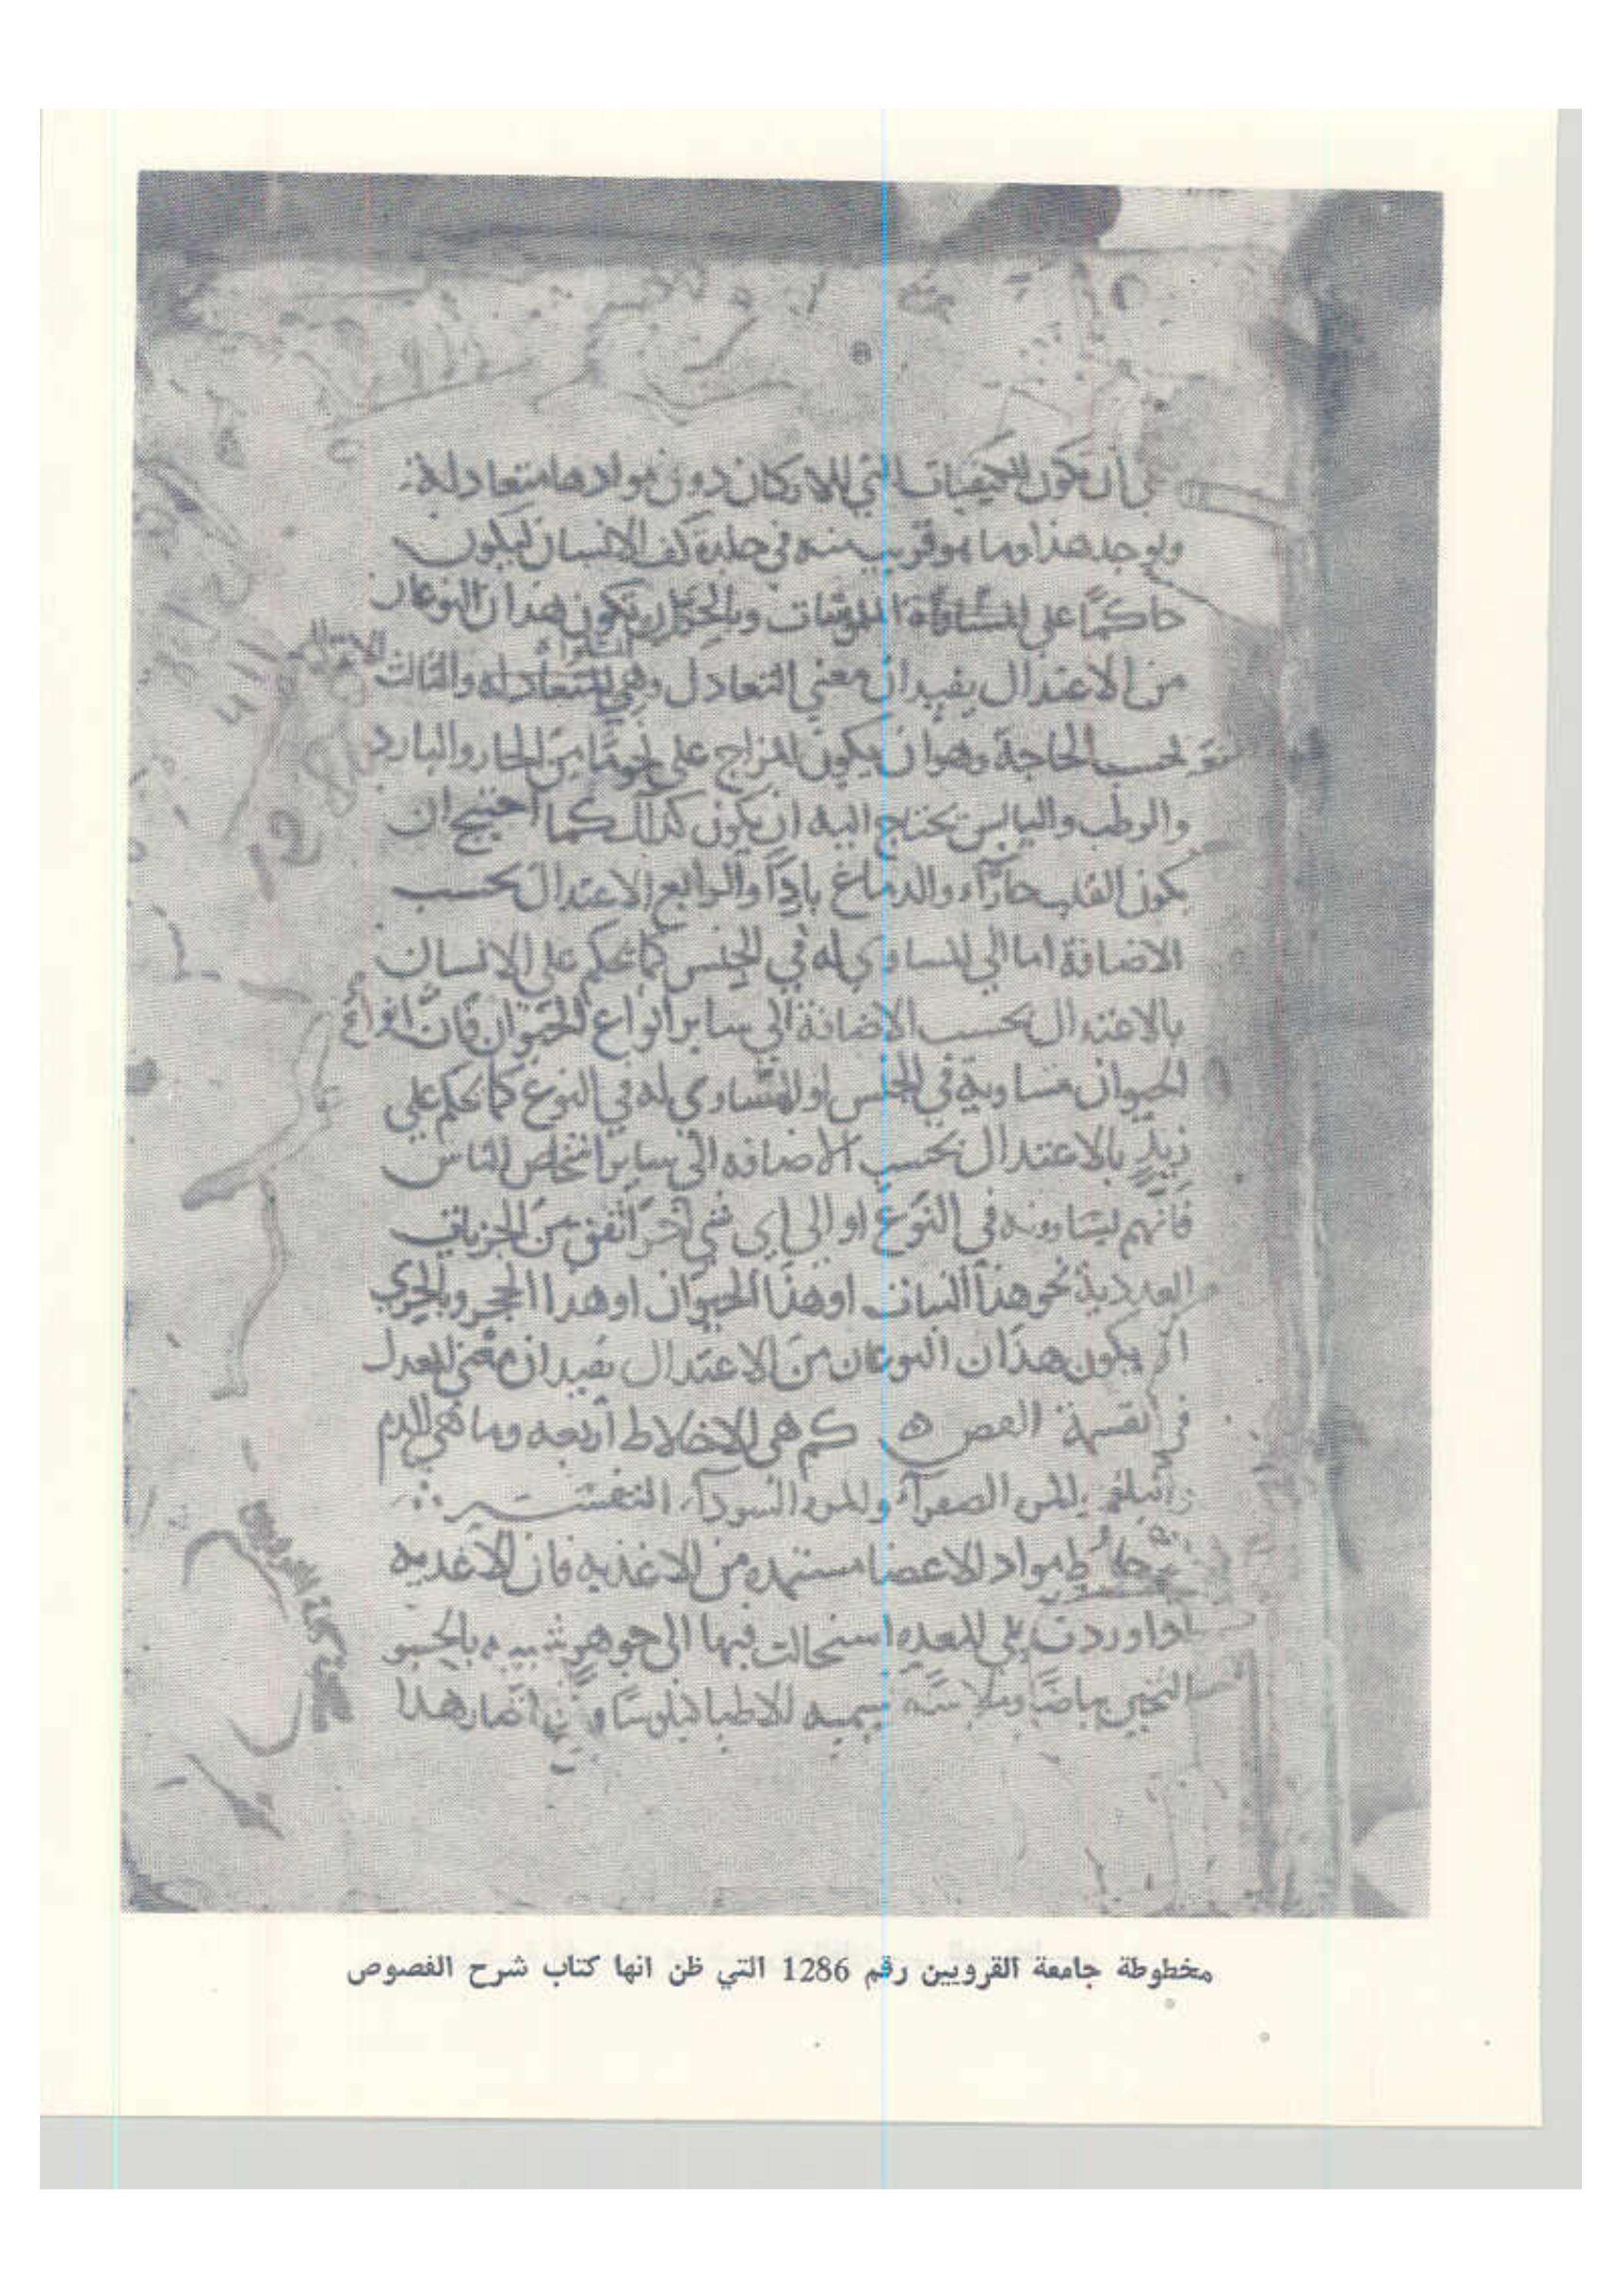 أن تكون الكيفيات التي للاركان دون موادها متعادلة
ويوجد هذا وما هو قريب منه في جلدة كف الانسان ليكون
حاكمًا على الملموسات وبالحري ان تكون هدان النوعان
من الاعتدال يفيدان معنى التعادل والثالث
بحسب الحاجة وهو ان يكون المزاج على من الحار والبارد
والرطب واليابس يحتاج اليه ان يكون كذلك كما احتيج ان
يكون القلب حارًّا والدماغ باردًا والرابع الاعتدال بحسب
الاضافة اما الي المساوي له في الجنس كما تحكم على الانسان
بالاعتدال بحسب الاضافة الي ساير انواع الحيوان فان انواع
الحيوان مساوية في الجنس او المساوي له في النوع كما تحكم على
زيدٍ بالاعتدال بحسب الاضافه الي ساير اشخاص الناس
فانهم يساوونه في النوع او الي اي شي آخر اتفق من الجزيات
العددية نحو هذا النبات او هذا الحيوان او هدا الحجر وبالحري
ان يكون هذان النوعان من الاعتدال يفيدان معنى العدل
في القسمة الفص ه كم هي الاخلاط أربعه وما هي الدم
والبلغم والمره الصفرآء والمره السودآء التفسير
مواد الاعضا مستمده من الاغذيه فان الاغذيه
ادا وردت على المعده استحالت فيها الى جوهر شبيه بالحسو
الثخين بياضًا وملاسة يسميه الاطبا كيلوسًا هدا
مخطوطة جامعة القرويين رقم 1286 التي ظن انها كتاب شرح الفصوص